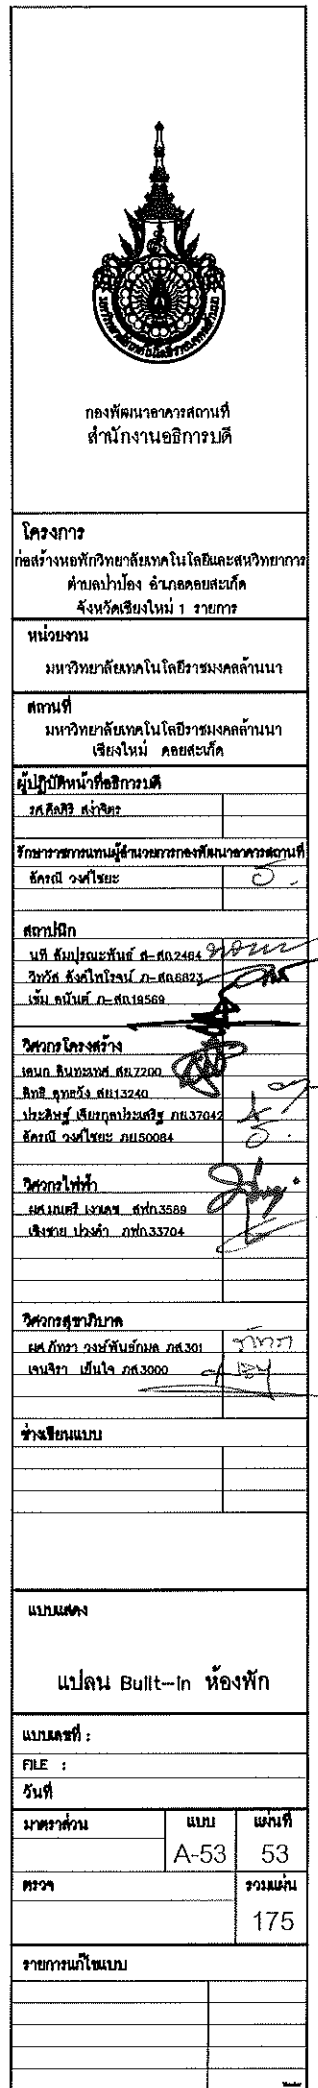 กองพัฒนาอาคารสถานที่
สำนักงานอธิการบดี
โครงการ
ก่อสร้างหอพักวิทยาลัยเทคโนโลยีและสหวิทยาการ
ตำบลป่าป้อง อำเภอดอยสะเก็ด
จังหวัดเชียงใหม่ 1 รายการ
หน่วยงาน
มหาวิทยาลัยเทคโนโลยีราชมงคลล้านนา
สถานที่
มหาวิทยาลัยเทคโนโลยีราชมงคลล้านนา
เชียงใหม่ ดอยสะเก็ด
ผู้ปฏิบัติหน้าที่อธิการบดี
รศ.ศีลศิริ สง่าจิตร
รักษาราชการแทนผู้อำนวยการกองพัฒนาอาคารสถานที่
อัครณี วงศ์ไชยะ
สถาปนิก
นที สัมปุรณะพันธ์ ส-สถ2484
วิทวัส สิงห์ไพโรจน์ ภ-สถ6823
เข็ม อนันต์ ภ-สถ19569
วิศวกรโครงสร้าง
เอนก สินทะเทศ สย7200
สิทธิ อุทธวัง สย13240
ประดิษฐ์ เจียรกุลประเสริฐ ภย37042
อัครณี วงศ์ไชยะ ภย50084
วิศวกรไฟฟ้า
ผศ.มนตรี เงาเดช สฟก3589
เชิงชาย ปวงคำ ภฟก33704
วิศวกรสุขาภิบาล
ผศ.ภัทรา วงษ์พันธ์กมล ภส301
เจนจิรา เย็นใจ ภส3000
ช่างเขียนแบบ
แบบแสดง
แปลน Built-in ห้องพัก
แบบเลขที่ :
FILE :
วันที่
มาตราส่วน แบบ แผ่นที่
A-53 53
ตรวจ รวมแผ่น
175
รายการแก้ไขแบบ